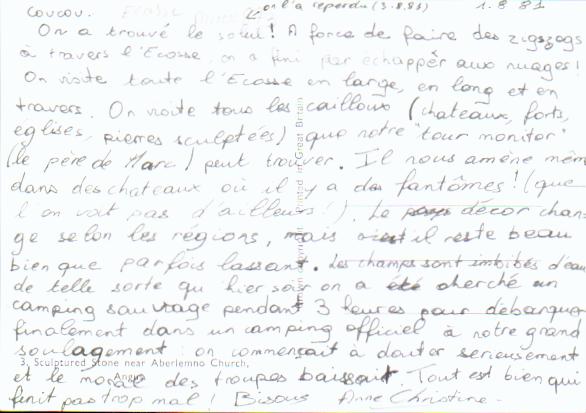 coucou.
on l'a reperdu (3.8.81)
1.8.81
On a trouvé le soleil! A force de faire des zigszogs
à travers l'Ecosse, on a fini par échapper aux nuages!
On visite toute l'Ecosse en large, en long et en
travers. On visite tous les cailloux (chateaux, forts,
églises, pierres sculptées) que notre "tour monitor"
(le père de Marc) peut trouver. Il nous amène mêm
dans des chateaux où il y a des fantômes! (que
l'on voit pas d'ailleurs!). Le pays décor chan-
ge selon les régions, mais il reste beau
bien que parfois lassant. Les champs sont imbibés d'eau
de telle sorte qu'hier soir on a été cherché un
camping sauvage pendant 3 heures pour débarquer
finalement dans un camping officiel à notre grand
soulagement: on commençait à douter serieusement
et le moral des troupes baissait. Tout est bien qui
finit pas trop mal! Bisous Anne Christine.
3. Sculptured Stone near Aberlemno Church,
Angus
Printed in Great Britain
copyright